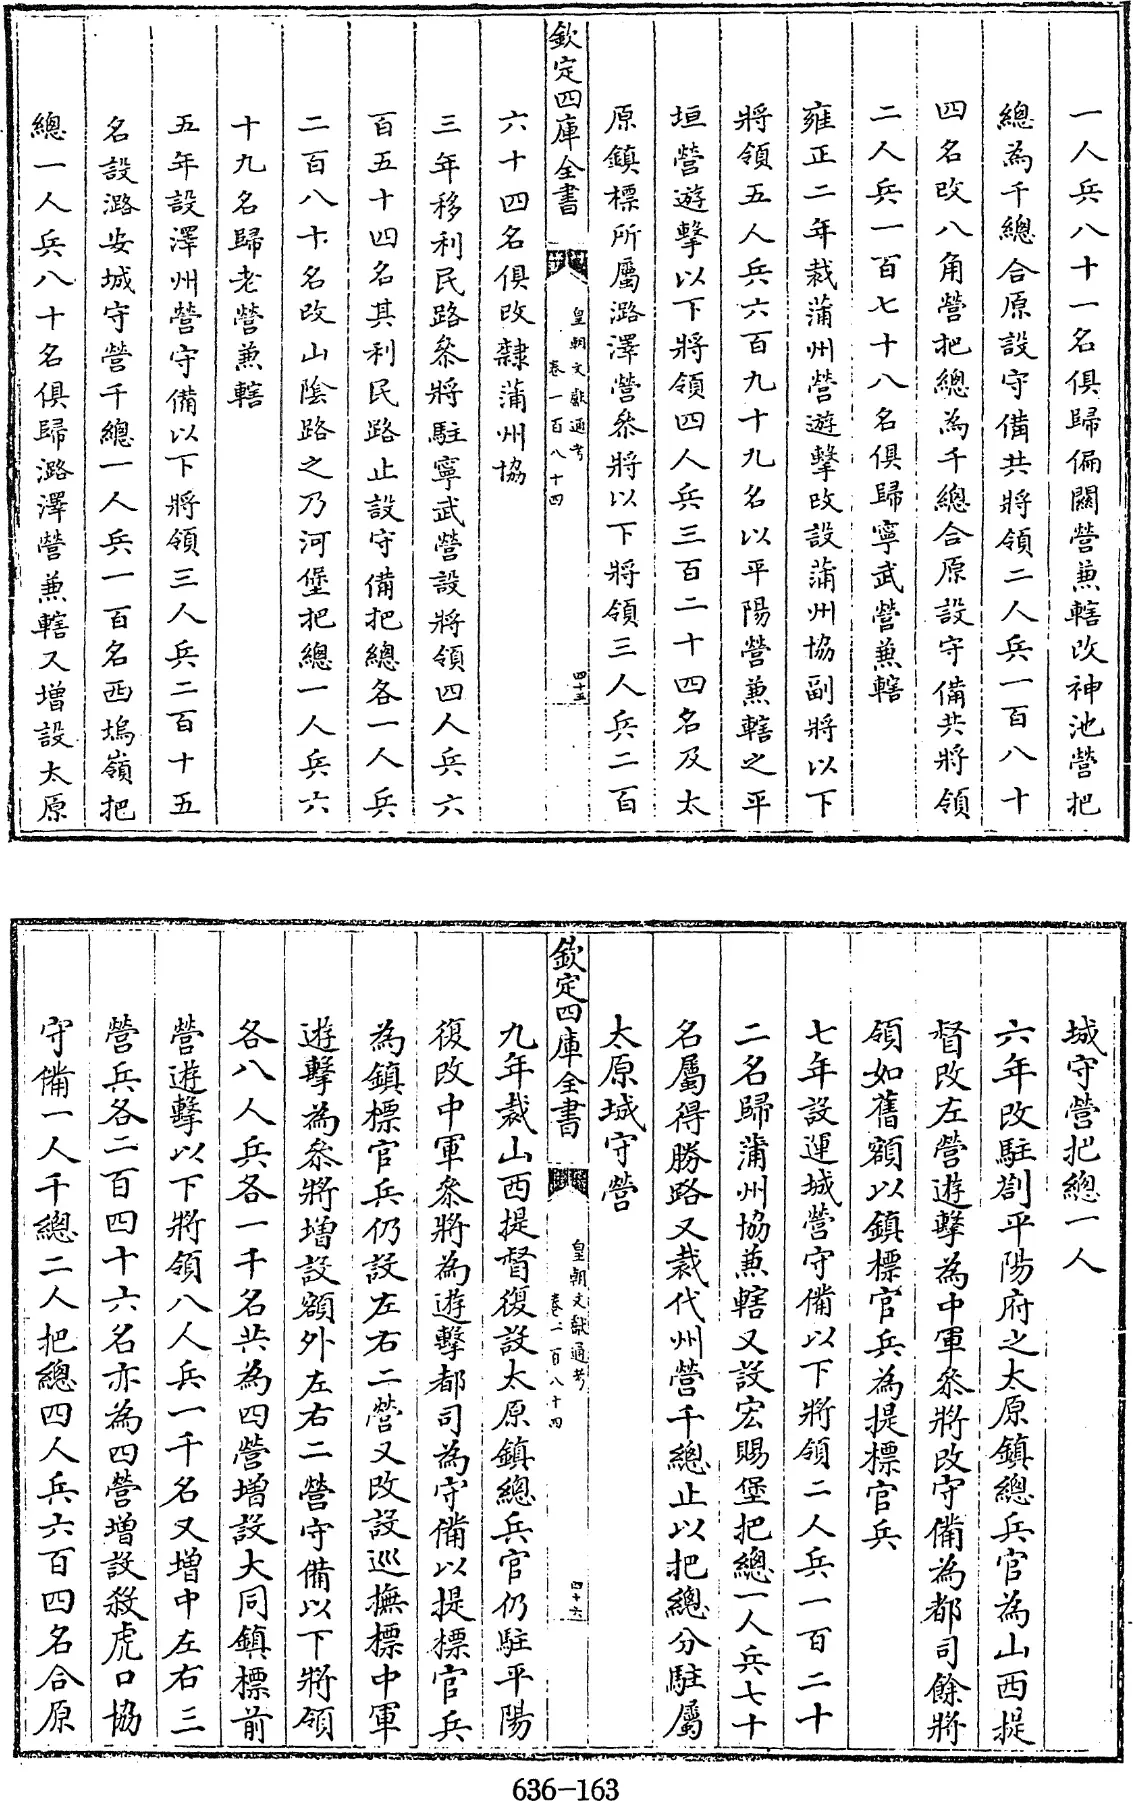 一人兵八十一名俱歸偏關營兼轄改神池營把
總為千總合原設守備共將領二人兵一百八十
四名改八角營把總為千總合原設守備共將領
二人兵一百七十八名俱歸寧武營兼轄
雍正二年裁蒲州營遊擊改設蒲州協副將以下
將領五人兵六百九十九名以平陽營兼轄之平
垣營遊擊以下將領四人兵三百二十四名及太
原鎮標所屬潞澤營叅將以下將領三人兵二百
欽定四庫全書
皇朝文獻通考
卷一百八十四
四十五
六十四名俱改隸蒲州協
三年移利民路叅將駐寧武營設將領四人兵六
百五十四名其利民路止設守備把總各一人兵
二百八十名改山陰路之乃河堡把總一人兵六
十九名歸老營兼轄
五年設澤州營守備以下將領三人兵二百十五
名設潞安城守營千總一人兵一百名西塢嶺把
總一人兵八十名俱歸潞澤營兼轄又增設太原
城守營把總一人
六年改駐劄平陽府之太原鎮總兵官為山西提
督改左營遊擊為中軍叅將改守備為都司餘將
領如舊額以鎮標官兵為提標官兵
七年設運城營守備以下將領二人兵一百二十
二名歸蒲州協兼轄又設宏賜堡把總一人兵七十
名屬得勝路又裁代州營千總止以把總分駐屬
太原城守營
欽定四庫全書
皇朝文獻通考
卷一百八十四
四十六
九年裁山西提督復設太原鎮總兵官仍駐平陽
復改中軍叅將為遊擊都司為守備以提標官兵
為鎮標官兵仍設左右二營又改設巡撫標中軍
遊擊為叅將增設額外左右二營守備以下將領
各八人兵各一千名共為四營增設大同鎮標前
營遊擊以下將領八人兵一千名又增中左右三
營兵各二百四十六名亦為四營增設殺虎口協
守備一人千總二人把總四人兵六百四名合原
636-163